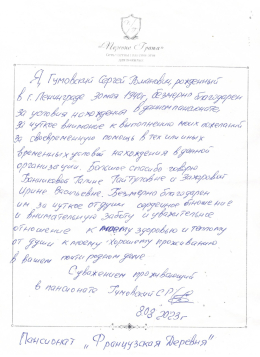 Я, Гумовский Сергей Романович, рожденный
в г. Ленинграде 30 мая 1946г, безмерно благодарен
за условия нахождения в данном пансионате.
За чуткое внимание к выполнению моих пожеланий
за своевременную помощь в тех или иных
временных условий нахождения в данной
организации. Большое спасибо говорю
Галине и Захаровой
Ирине Васильевне. Безмерно благодарен
им за чуткое от души сердечное отношение
и внимательную заботу и уважительное
отношение к моему здоровью и потому
от души к моему хорошему проживанию
в вашем почти родном доме.
С уважением проживающий
в пансионате Гумовский С.Р.
8.03 2023г
Пансионат „Французская Деревня"